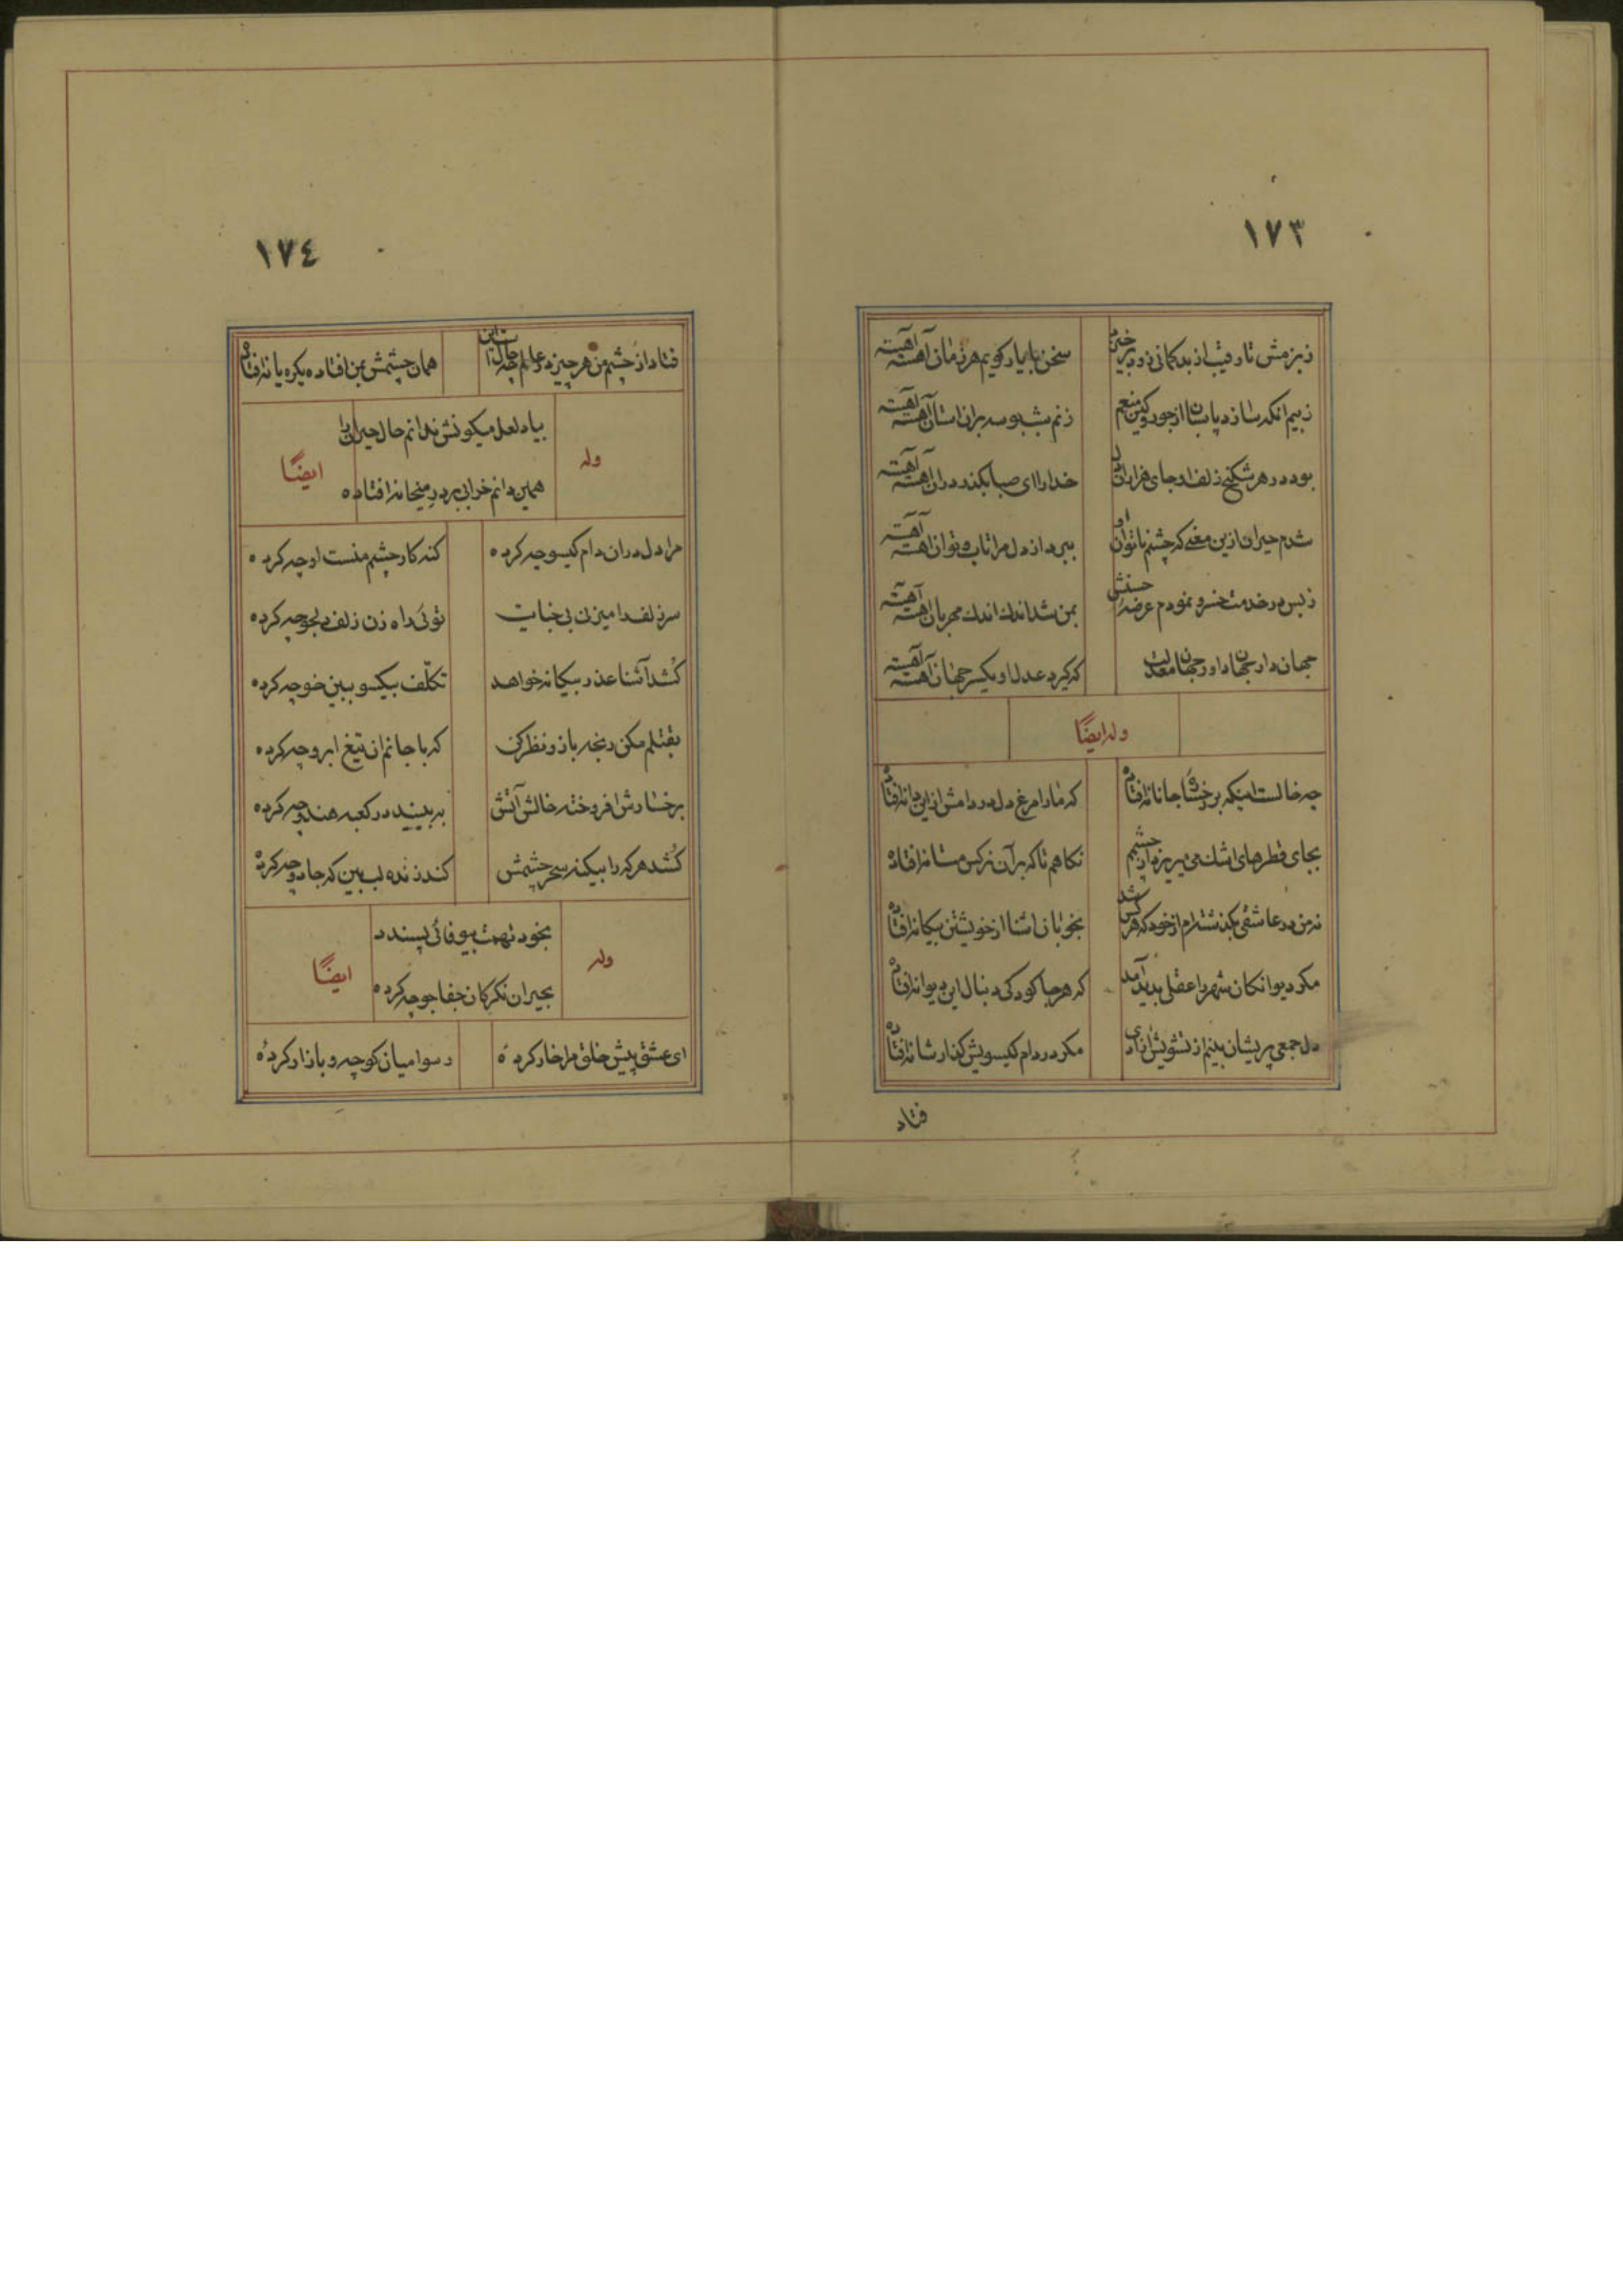 ١٧٣
ز بزمش تا رقیب از بدکمانی زود برخیزد
سخن با یار کویم هر زمان آهسته آهسته
ز بیم انکه سازد پاسبان از جور وکین منعم
زنم شب بوسه بران استان آهسته آهسته
بود در هر شکنج زلف او جای هزاران دل
خدا را ای صبا بکذر دران آهسته آهسته
شدم حیران ازین معنی که چشم ناتوان او
ببرد از دل مرا تاب و توان آهسته آهسته
ز بس در خدمت خسرو نمودم عرضه حسنش
بمن شد اندک اندک مهربان آهسته آهسته
جهان دار جهان داور جهان معدلت
که کیرد عدل او یکسر جهان آهسته آهسته
وله ایضًا
چه خالست اینکه بر رخسار جانانه افتاده
که ما را مرغ دل در دامش از این دانه افتاده
بجای قطرهای اشک می میریزد از چشمم
نکاهم تا که بر آن نرکس مستانه افتاده
نه من در عاشقی بکذشته‌ام از خود که هر کس شد
بخوبان اشنا از خویشتن بیکانه افتاده
مکر دیوانکان شهر را عقلی بدید آمد
که هرجا کودکی دنبال این دیوانه افتاده
دل جمعی پریشان بینم از تشویش ازادی
مکر در دام کیسویش کذار شانه افتاده
فتاد
١٧٤
فتاد از چشم من هر چیز در عالم
همان چشمش بمن افتاده یکره یا نه افتاده
بیاد لعل میکونش ندانم حال حیران را
وله
ایضًا
همین دانم خرابی بر در میخانه افتاده
مرا دل دران دام کیسو چه کرده
کنه کار چشم منست او چه کرده
سر زلف را میزنی بی خبایت
توئی راه زن زلف دلجو چه کرده
کُشد آشنا عذر بیکانه خواهد
تکلّف بیکسو ببین خو چه کرده
بقتلم مکن رنجه بازو نظر کن
که با جانم ان تیغ ابرو چه کرده
برخسارش افروخته خالش آتش
ببینید در کعبه هندو چه کرده
کُشد هر که را بیکنه سحر چشمش
کند زنده لب بین که جادو چه کرده
بخود تهمت بیوفائی پسندد
وله
ایضًا
بحیران نکر کان جفا جو چه کرده
ای عشق پیش خلق مرا خار کردهٔ
رسوا میان کوچه و بازار کردهٔ